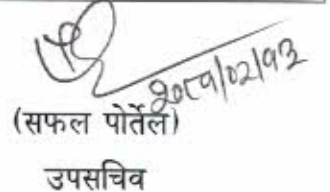 २०८१/०२/१३
(सफल पोर्तेल)
उपसचिव